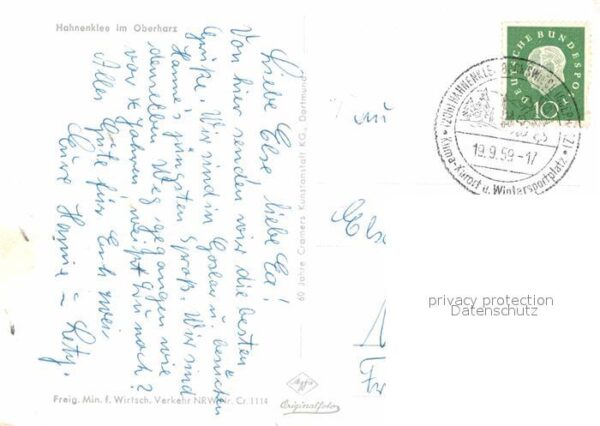 Hahnenklee im Oberharz
Liebe Else liebe Ea!
Von hier senden wir die besten
Grüße. Wir sind in Goslar u. besuchen
Hanne's jüngsten Spross. Wir sind
denselben Weg gegangen wie
vor x Jahren weißt Du noch?
Alles Gute für Euch zwei
Eure Hanne –
60 Jahre Cramers Kunstanstalt KG., Dortmund
Freig. Min. f. Wirtsch. Verkehr NRW Nr. Cr 1114
Agfa
Originalfoto
DEUTSCHE BUNDESPOST
10
HAHNENKLEE-
19.9.59-17
Klima-Kurort u. Wintersportplatz
Else
privacy protection
Datenschutz